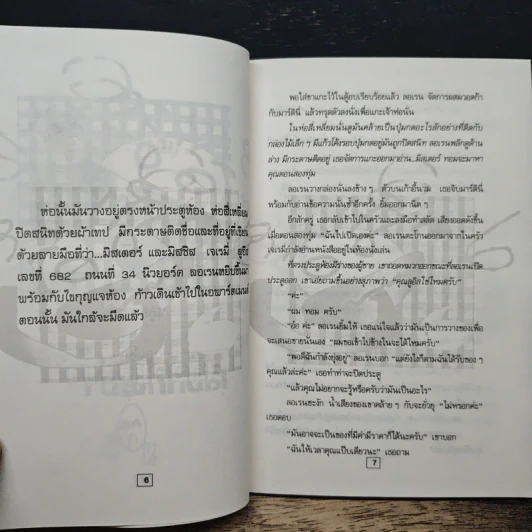 ห่อนั้นมันวางอยู่ตรงหน้าประตูห้อง ห่อสี่เหลี่ยม
ปิดสนิทด้วยผ้าเทป มีกระดาษติดชื่อและที่อยู่ที่เขียน
ด้วยลายมือที่ว่า...มิสเตอร์ และมิสซิส เจเรมี่ ลูอิส
เลขที่ 662 ถนนที่ 34 นิวยอร์ค ลอเรนหยิบขึ้นมา
พร้อมกับไขกุญแจห้อง ก้าวเดินเข้าไปในอพาร์ตเมนต์
ตอนนั้น มันใกล้จะมืดแล้ว
6
พอใส่ขาแกะไว้ในตู้อบเรียบร้อยแล้ว ลอเรน จัดการผสมวอดก้า
กับมาร์ตินี่ แล้วทรุดตัวลงนั่งเพื่อแกะเจ้าห่อนั่น
ในห่อสี่เหลี่ยมนั่นดูมันคล้ายเป็นปุ่มกดอะไรสักอย่างที่ติดกับ
กล่องไม้เล็ก ๆ มีแก้วโค้งรอบปุ่มกดอยู่มันถูกปิดสนิท ลอเรนพลิกดูด้าน
ล่าง มีกระดาษติดอยู่ เธอจัดการแกะออกมาอ่าน..มิสเตอร์ ทอมจะมาหา
คุณตอนสองทุ่ม
ลอเรนวางกล่องนั่นลงข้าง ๆ ตัวบนเก้าอี้นวม เธอจิบมาร์ตินี่
พร้อมกับอ่านข้อความนั้นซ้ำอีกครั้ง ยิ้มออกมานิด ๆ
อีกสักครู่ เธอกลับเข้าไปในครัวและลงมือทำสลัด เสียงออดดังขึ้น
เมื่อตอนสองทุ่ม "ฉันไปเปิดเองค่ะ" ลอเรนตะโกนออกมาจากในครัว
เจเรมี่กำลังอ่านหนังสืออยู่ในห้องนั่งเล่น
ที่ตรงประตูห้องมีร่างของผู้ชาย เขาถอดหมวกออกขณะที่ลอเรนเปิด
ประตูออก เขาเอ่ยถามขึ้นอย่างสุภาพว่า "คุณลูอิสใช่ไหมครับ"
"ค่ะ"
"ผม ทอม ครับ"
"อ้อ ค่ะ" ลอเรนยิ้มให้ เธอแน่ใจแล้วว่ามันเป็นการวางของเพื่อ
จะเสนอขายนั่นเอง "ผมขอเข้าไปข้างในจะได้ไหมครับ"
"พอดีฉันกำลังยุ่งอยู่" ลอเรนบอก "แต่ยังไงก็ตามฉันได้รับของ ๆ
คุณแล้วล่ะค่ะ" เธอทำท่าจะปิดประตู
"แล้วคุณไม่อยากจะรู้หรือครับว่ามันเป็นอะไร"
ลอเรนชะงัก น้ำเสียงของเขาคล้าย ๆ กับจะยั่วยุ "ไม่หรอกค่ะ"
เธอตอบ
"มันอาจจะเป็นของที่มีค่ามีราคาก็ได้นะครับ" เขาบอก
"ฉันให้เวลาคุณแป๊บเดียวนะ" เธอถาม
7